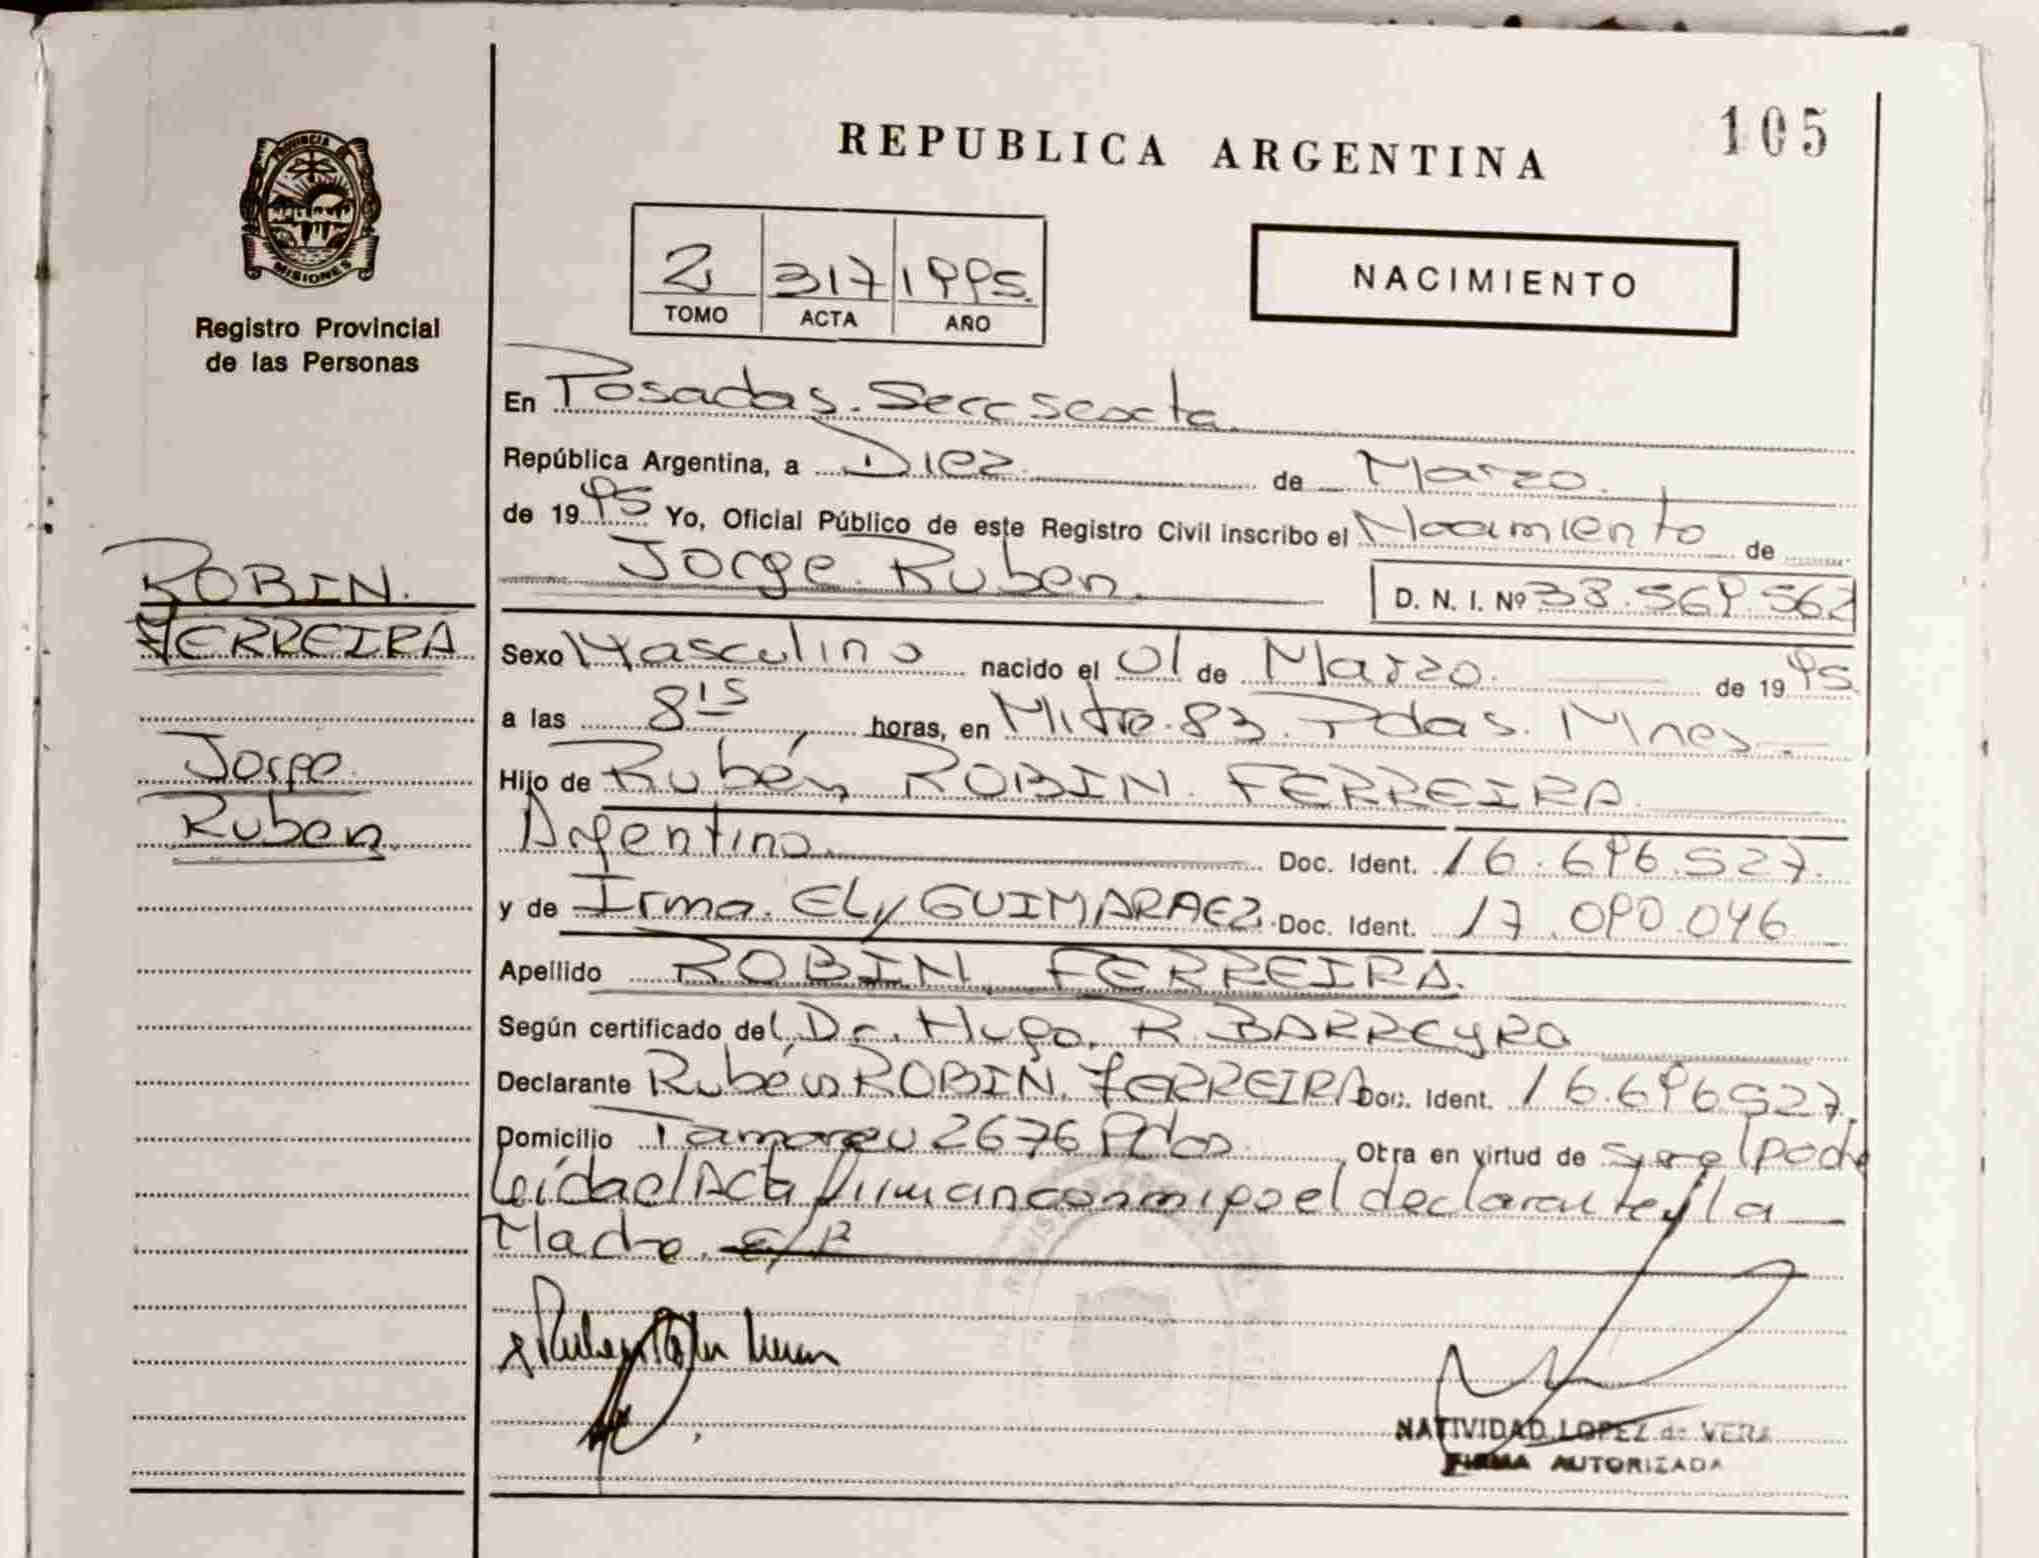 105
REPUBLICA ARGENTINA
PROVINCIA DE
MISIONES
Registro Provincial
de las Personas
2 317 1995.
TOMO ACTA AÑO
NACIMIENTO
En Posadas. Secc sexta
República Argentina, a Diez de Marzo.
de 1995 Yo, Oficial Público de este Registro Civil inscribo el Nacimiento de
Jorge Ruben
D. N. I. Nº 38.569.562
ROBIN.
FERREIRA
Jorge
Ruben
Sexo Masculino nacido el 01 de Marzo. de 1995
a las 8 15 horas, en Mitre. 83. Pdas. Mnes.
Hijo de Rubén ROBIN. FERREIRA
Argentino. Doc. Ident. 16.696.527.
y de Irma. Ely GUIMARAEZ. Doc. Ident. 17.090.046
Apellido ROBIN FERREIRA.
Según certificado del Dr. Hugo. R. BARREYRO
Declarante Rubén ROBIN. FERREIRA Doc. Ident. 16.696527.
Domicilio Tamareu 2676 Pdas Obra en virtud de ser el padre
Leída el Acta firman conmigo el declarante y la
Madre. E/R
NATIVIDAD LOPEZ de VERA
FIRMA AUTORIZADA